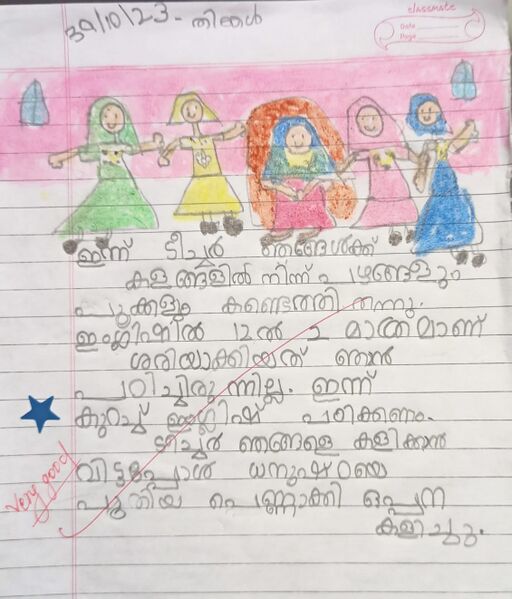 classmate
Date
Page
30/10/23 - തിങ്കൾ
ഇന്ന് ടീച്ചർ ഞങ്ങൾക്ക്
കളങ്ങളിൽ നിന്ന് പഴങ്ങളും
പൂക്കളും കണ്ടെത്തി തന്നു.
ഇംഗ്ലീഷിൽ 12ൽ 2 മാത്രമാണ്
ശരിയാക്കിയത് ഞാൻ
പഠിച്ചിരുന്നില്ല. ഇന്ന്
കുറച്ച് ഇംഗ്ലീഷ് പഠിക്കണം.
ടീച്ചർ ഞങ്ങളെ കളിക്കാൻ
വിട്ടപ്പോൾ ധനുഷഠയെ
പുതിയ പെണ്ണാക്കി ഒപ്പന
കളിച്ചു.
Very good